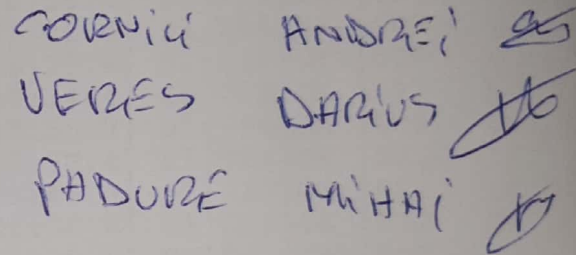 CORNICI ANDREI
VERES DARIUS
PADURE MIHAI